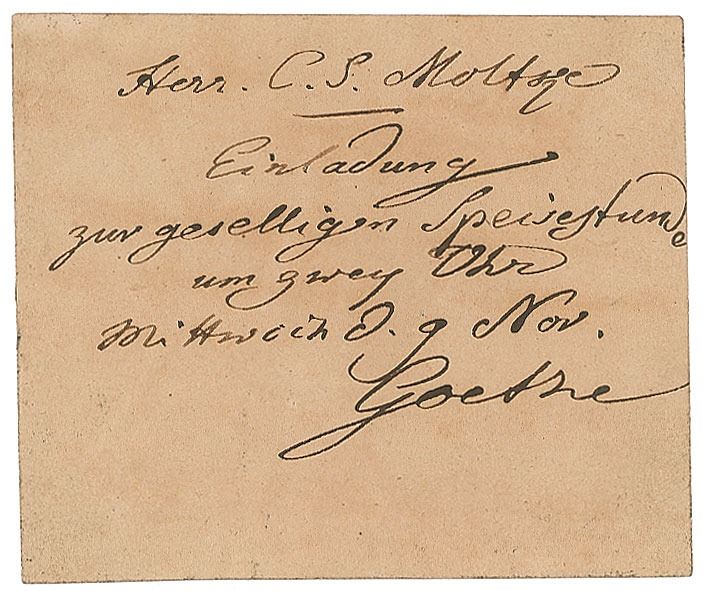 Herr. C. S. Moltke
Einladung
zur geselligen Speisestunde
um zwey Uhr
Mittwoch d. 9 Nov.
Goethe